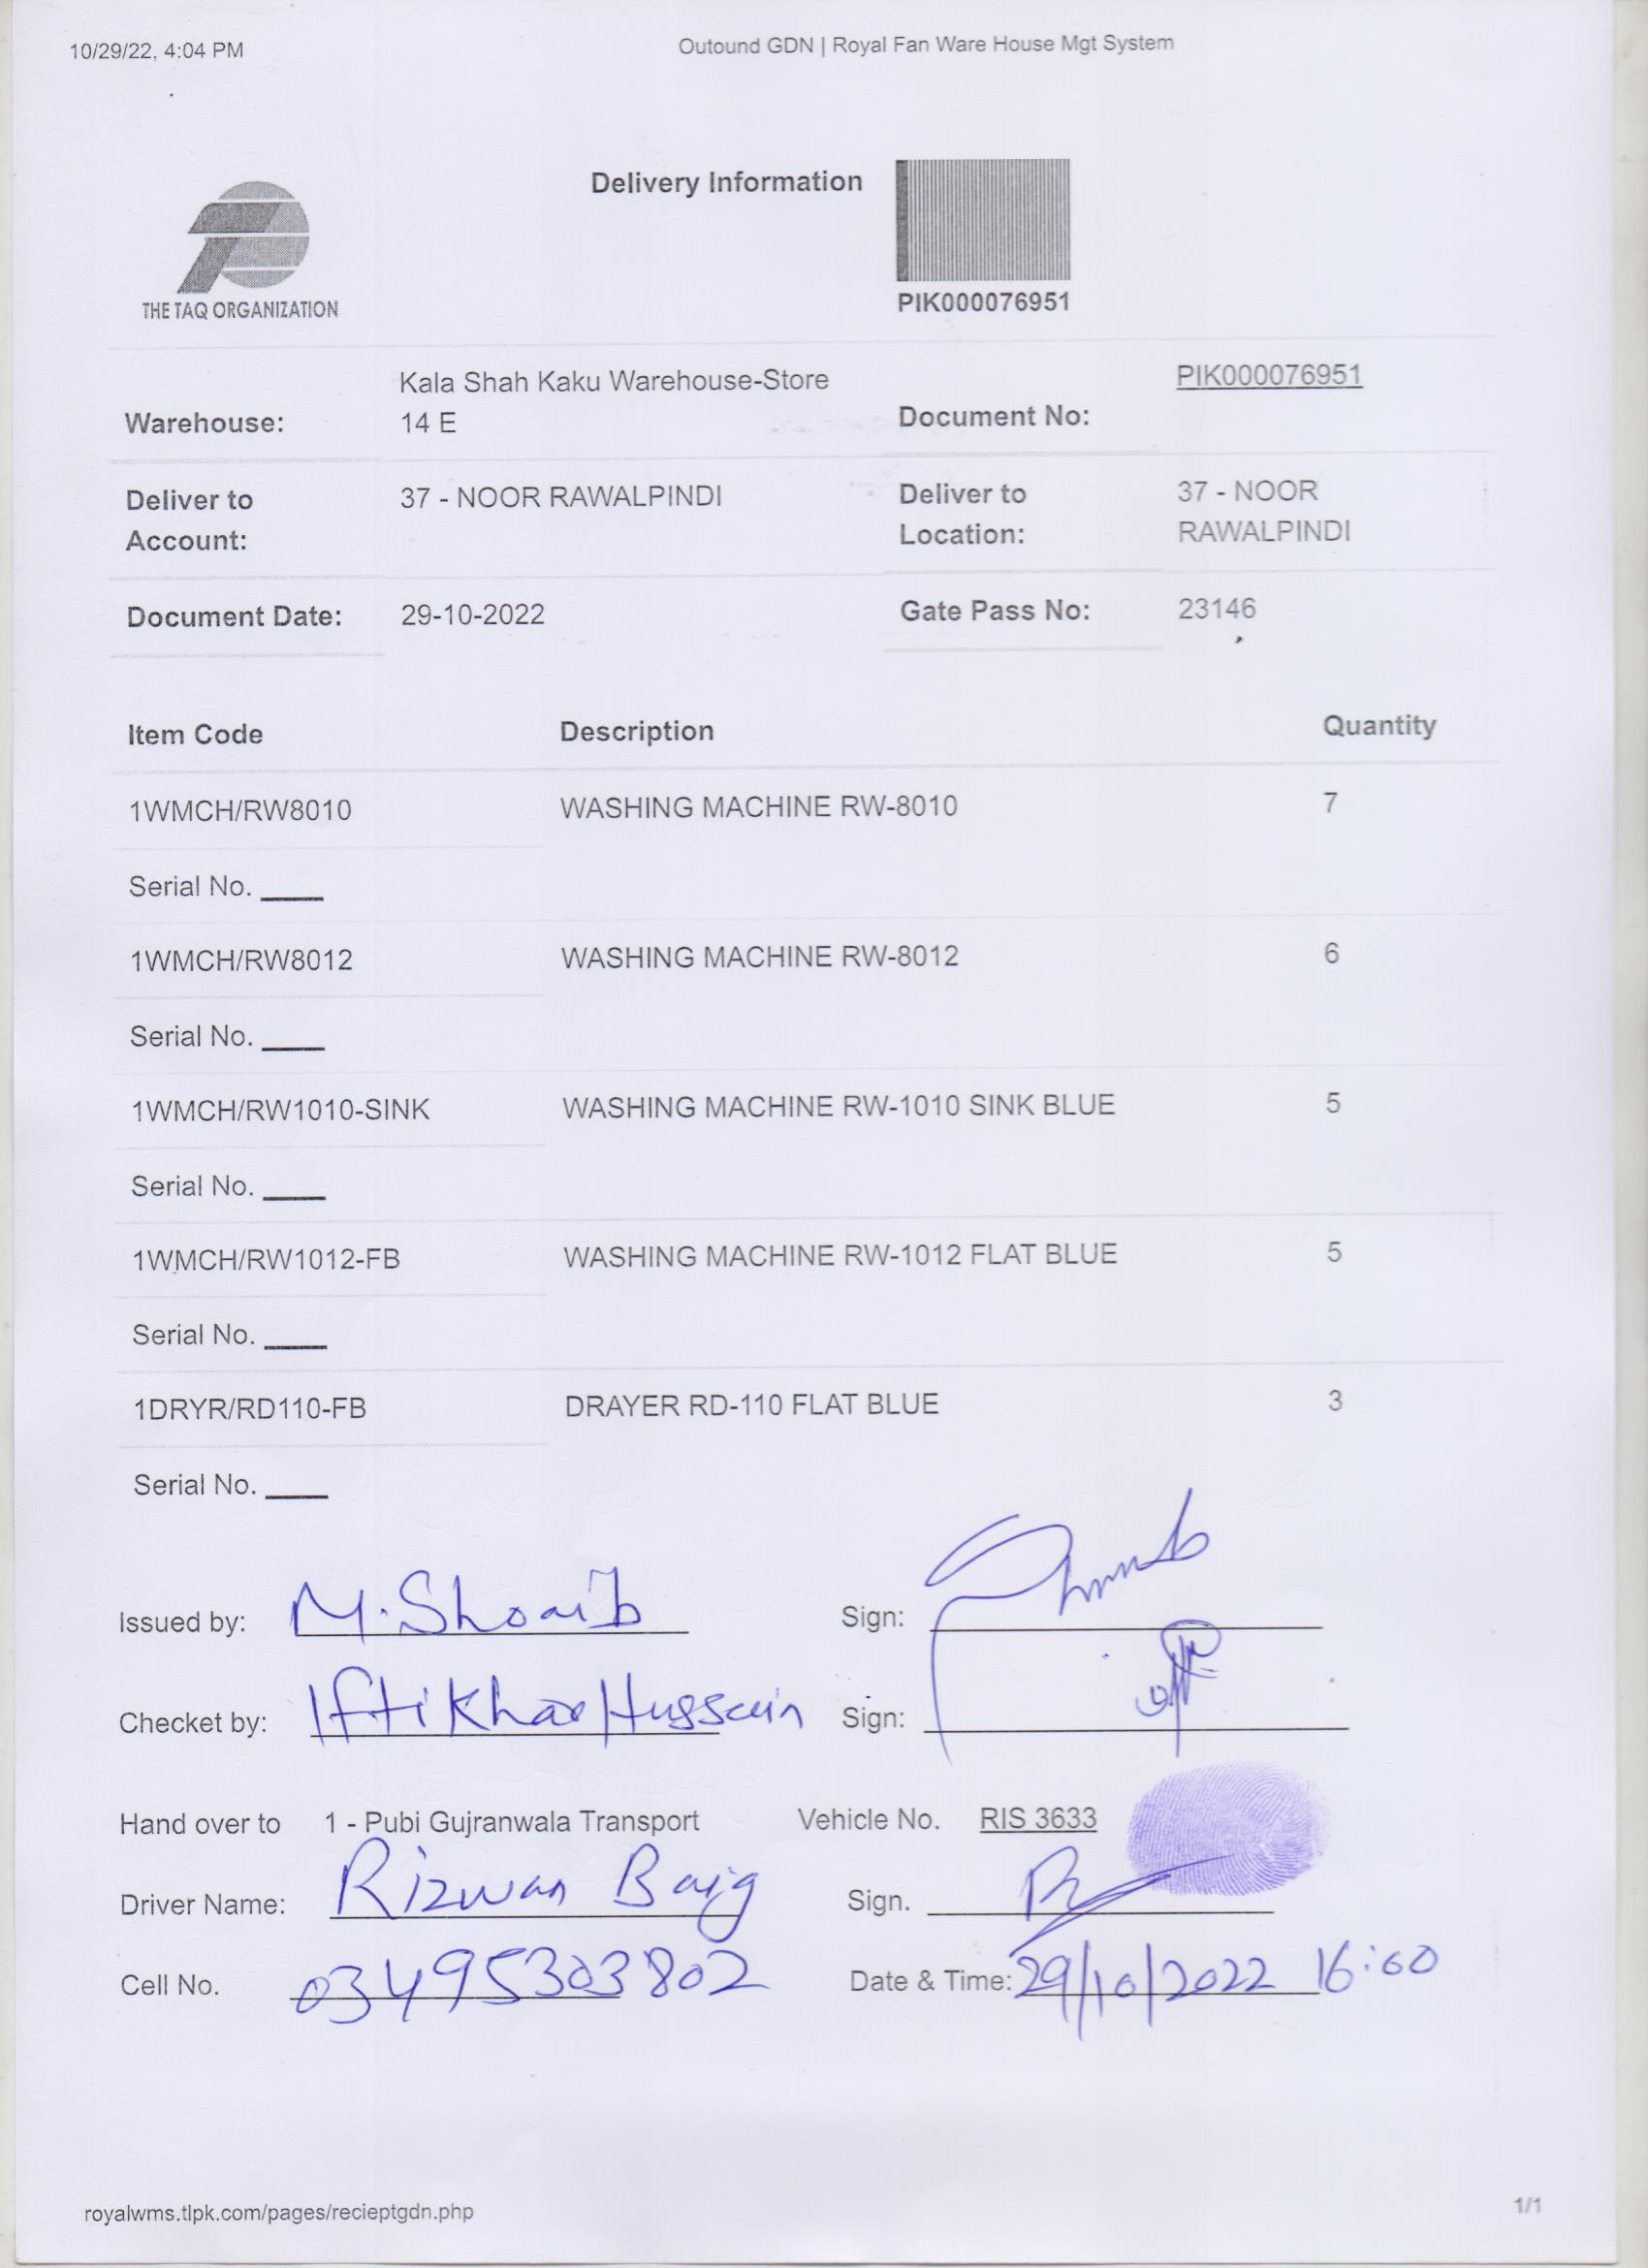 10/29/22, 4:04 PM
Outound GDN | Royal Fan Ware House Mgt System
Delivery Information
THE TAQ ORGANIZATION
PIK000076951
Kala Shah Kaku Warehouse-Store
PIK000076951
Warehouse: 14 E Document No:
Deliver to 37 - NOOR RAWALPINDI Deliver to 37 - NOOR
Account: Location: RAWALPINDI
Document Date: 29-10-2022 Gate Pass No: 23146
Item Code Description Quantity
1WMCH/RW8010 WASHING MACHINE RW-8010 7
Serial No. ____
1WMCH/RW8012 WASHING MACHINE RW-8012 6
Serial No. ____
1WMCH/RW1010-SINK WASHING MACHINE RW-1010 SINK BLUE 5
Serial No. ____
1WMCH/RW1012-FB WASHING MACHINE RW-1012 FLAT BLUE 5
Serial No. ____
1DRYR/RD110-FB DRAYER RD-110 FLAT BLUE 3
Serial No. ____
Issued by: M.Shoaib Sign:
Checket by: Iftikhar Hussain Sign:
Hand over to 1 - Pubi Gujranwala Transport Vehicle No. RIS 3633
Driver Name: Rizwan Baig Sign.
Cell No. 03495303802 Date & Time: 29/10/2022 16:00
royalwms.tlpk.com/pages/recieptgdn.php 1/1